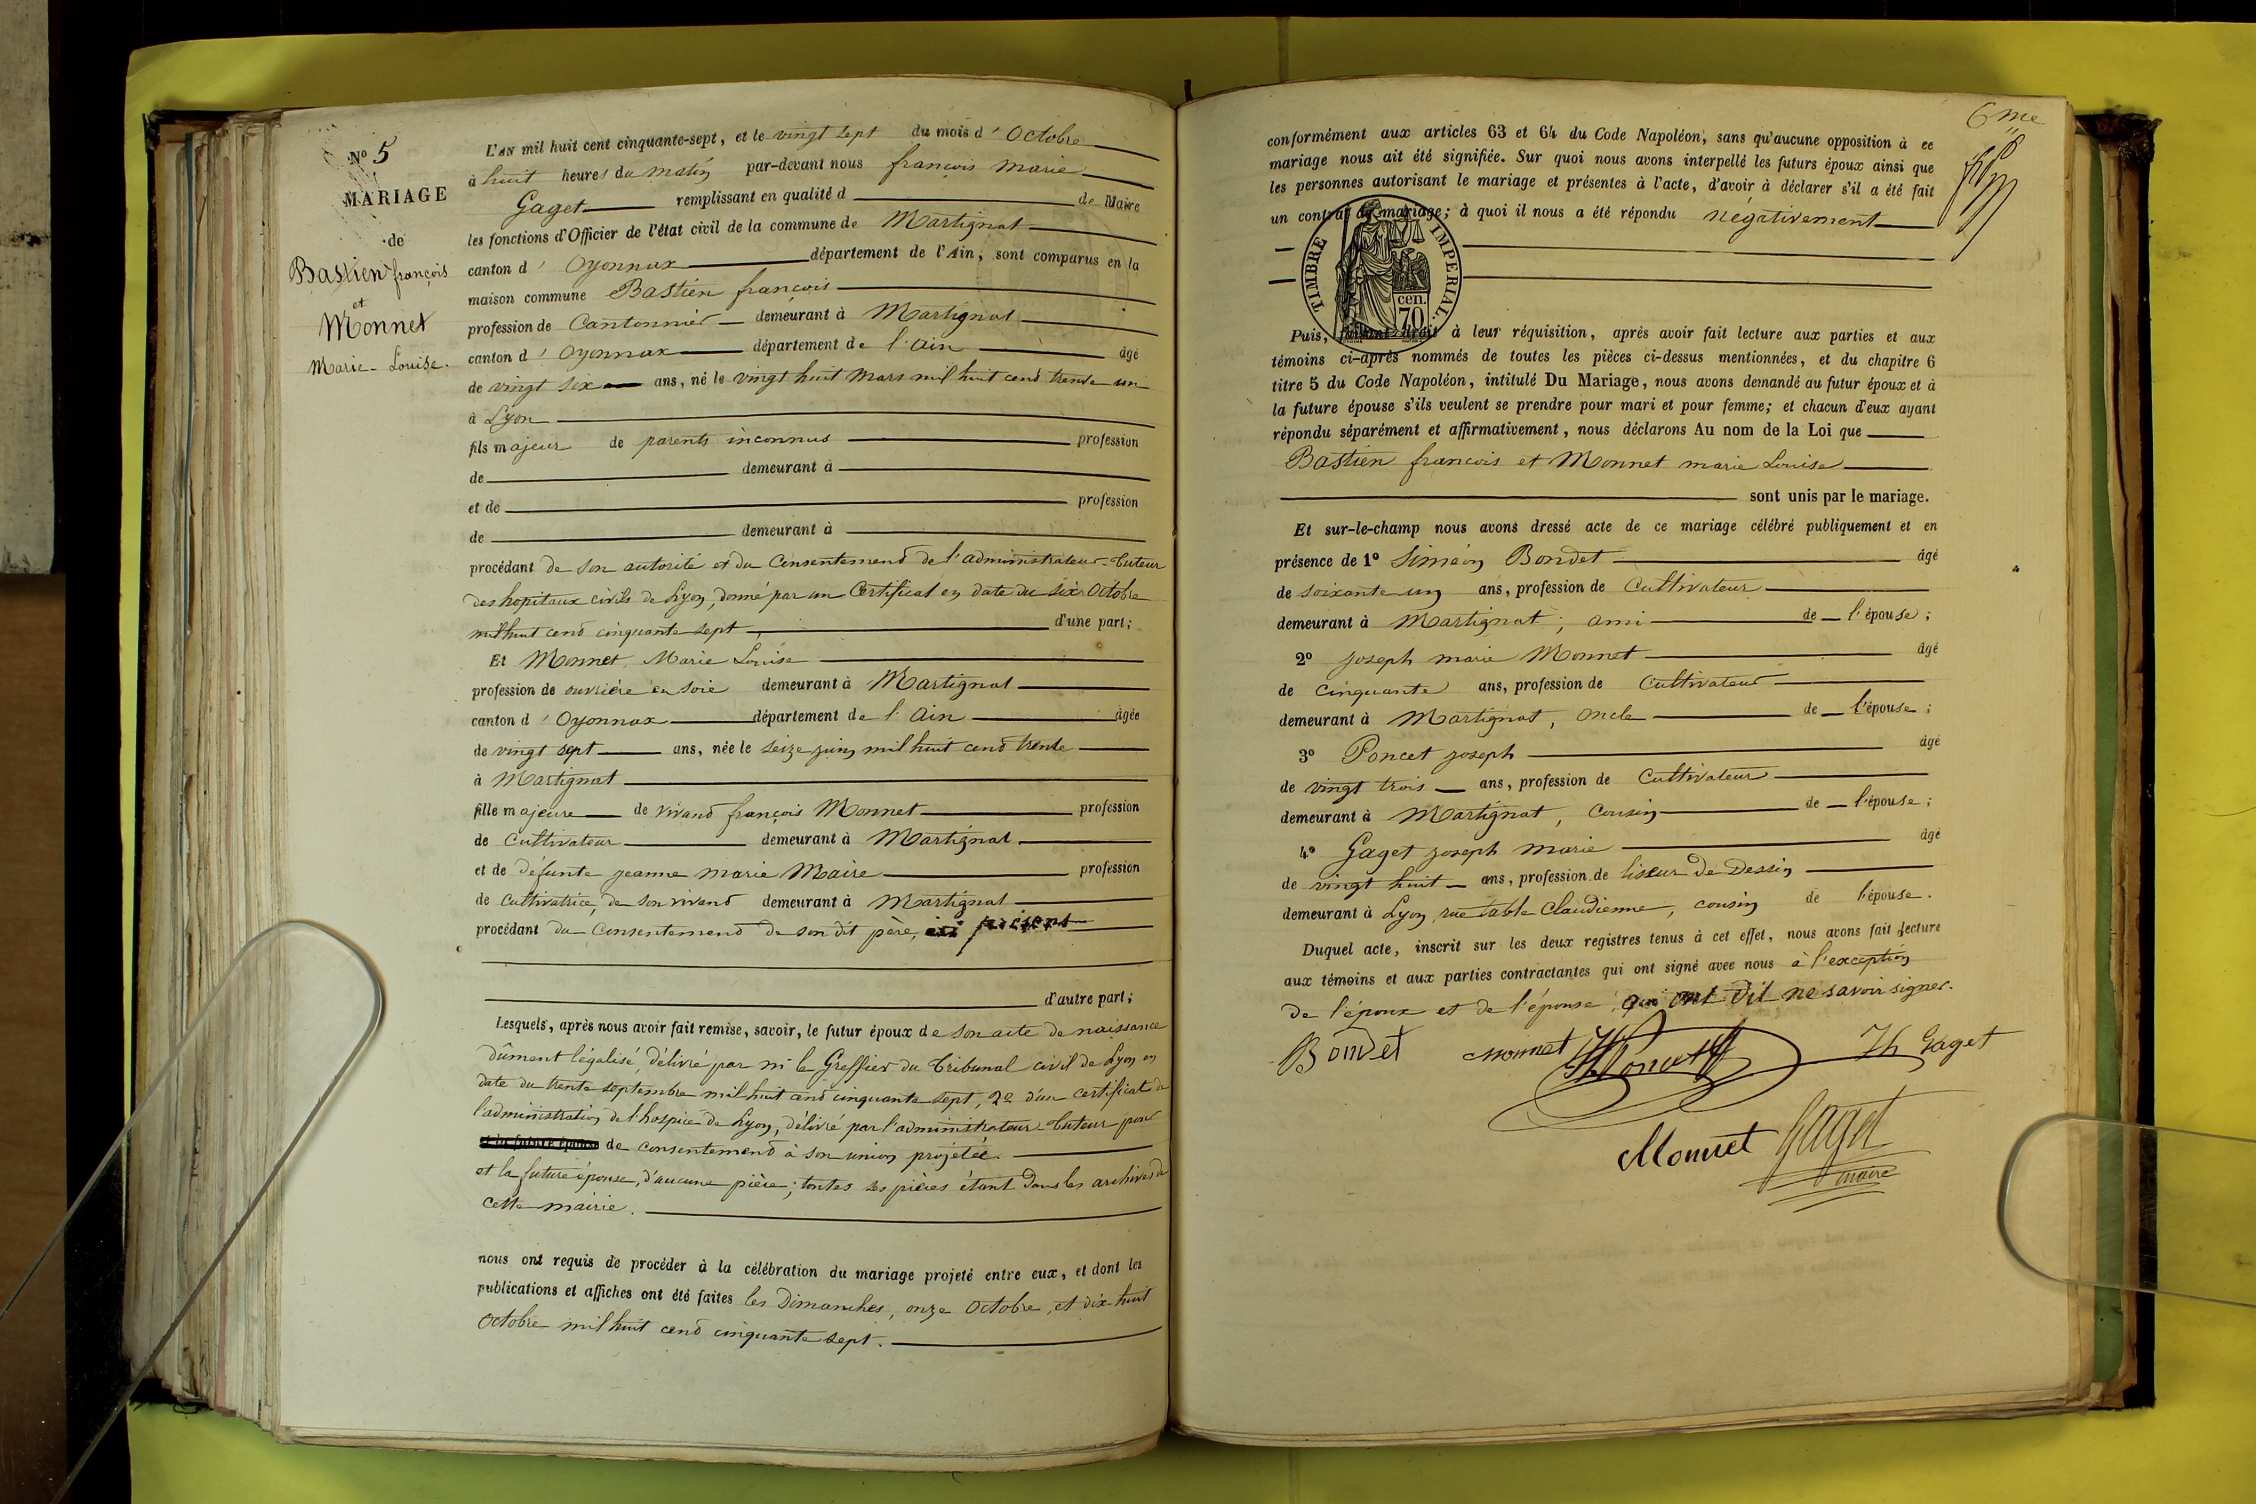 N° 5
MARIAGE
de
Bastien françois
et
Monnet
Marie-Louise.
L'AN mil huit cent cinquante-sept, et le vingt sept du mois d' Octobre
à huit heures du matin par-devant nous françois marie
Gaget remplissant en qualité d de Maire
les fonctions d'Officier de l'état civil de la commune de Martignat
canton d' Oyonnax département de l'Ain, sont comparus en la
maison commune Bastien françois
profession de Cantonnier demeurant à Martignat
canton d' Oyonnax département de l'ain âgé
de vingt six ans, né le vingt huit Mars mil huit cent trente un
à Lyon
fils majeur de parents inconnus profession
de demeurant à
et de profession
de demeurant à
procédant de son autorité et du Consentement de l'administrateur-tuteur
des hopitaux civils de Lyon, donné par un Certificat en date du six Octobre
mil huit cent cinquante sept, d'une part;
Et Monnet Marie Louise
profession de ouvrière en soie demeurant à Martignat
canton d' Oyonnax département de l'Ain âgée
de vingt sept ans, née le seize juin mil huit cent trente
à Martignat
fille majeure de vivant françois Monnet profession
de Cultivateur demeurant à Martignat
et de défunte jeanne marie Maire profession
de Cultivatrice, de son vivant demeurant à Martignat
procédant du Consentement de son dit père, ici présent
d'autre part;
Lesquels, après nous avoir fait remise, savoir, le futur époux de son acte de naissance
dûment légalisé, délivré par mr le Greffier du Tribunal civil de Lyon en
date du trente septembre mil huit cent cinquante sept, 2° d'un certificat de
l'administration de l'hospice de Lyon, délivré par l'administrateur-tuteur pour
et la future épouse de consentement à son union projetée.
et la future épouse, d'aucune pièce; toutes ses pièces étant dans les archives de
cette mairie.
nous ont requis de procéder à la célébration du mariage projeté entre eux, et dont les
publications et affiches ont été faites les Dimanches, onze Octobre, et dix-huit
Octobre mil huit cent cinquante sept.
6me
conformément aux articles 63 et 64 du Code Napoléon, sans qu'aucune opposition à ce
mariage nous ait été signifiée. Sur quoi nous avons interpellé les futurs époux ainsi que
les personnes autorisant le mariage et présentes à l'acte, d'avoir à déclarer s'il a été fait
un contrat de mariage; à quoi il nous a été répondu négativement
TIMBRE IMPERIAL.
70 cen.
Puis, faisant droit à leur réquisition, après avoir fait lecture aux parties et aux
témoins ci-après nommés de toutes les pièces ci-dessus mentionnées, et du chapitre 6
titre 5 du Code Napoléon, intitulé Du Mariage, nous avons demandé au futur époux et à
la future épouse s'ils veulent se prendre pour mari et pour femme; et chacun d'eux ayant
répondu séparément et affirmativement, nous déclarons Au nom de la Loi que
Bastien francois et Monnet marie Louise
sont unis par le mariage.
Et sur-le-champ nous avons dressé acte de ce mariage célébré publiquement et en
présence de 1° Siméon Bondet âgé
de soixante un ans, profession de Cultivateur
demeurant à Martignat, ami de l'épouse;
2° joseph marie Monnet âgé
de cinquante ans, profession de Cultivateur
demeurant à Martignat, oncle de l'épouse;
3° Poncet joseph âgé
de vingt trois ans, profession de Cultivateur
demeurant à Martignat, cousin de l'épouse;
4° Gaget joseph marie âgé
de vingt huit ans, profession de liseur de Dessin
demeurant à Lyon, rue table Claudienne, cousin de l'épouse.
Duquel acte, inscrit sur les deux registres tenus à cet effet, nous avons fait lecture
aux témoins et aux parties contractantes qui ont signé avec nous à l'exception
de l'époux et de l'épouse qui ont dit ne savoir signer.
Bondet Monnet Poncet Jh Gaget
Monnet Gaget
maire